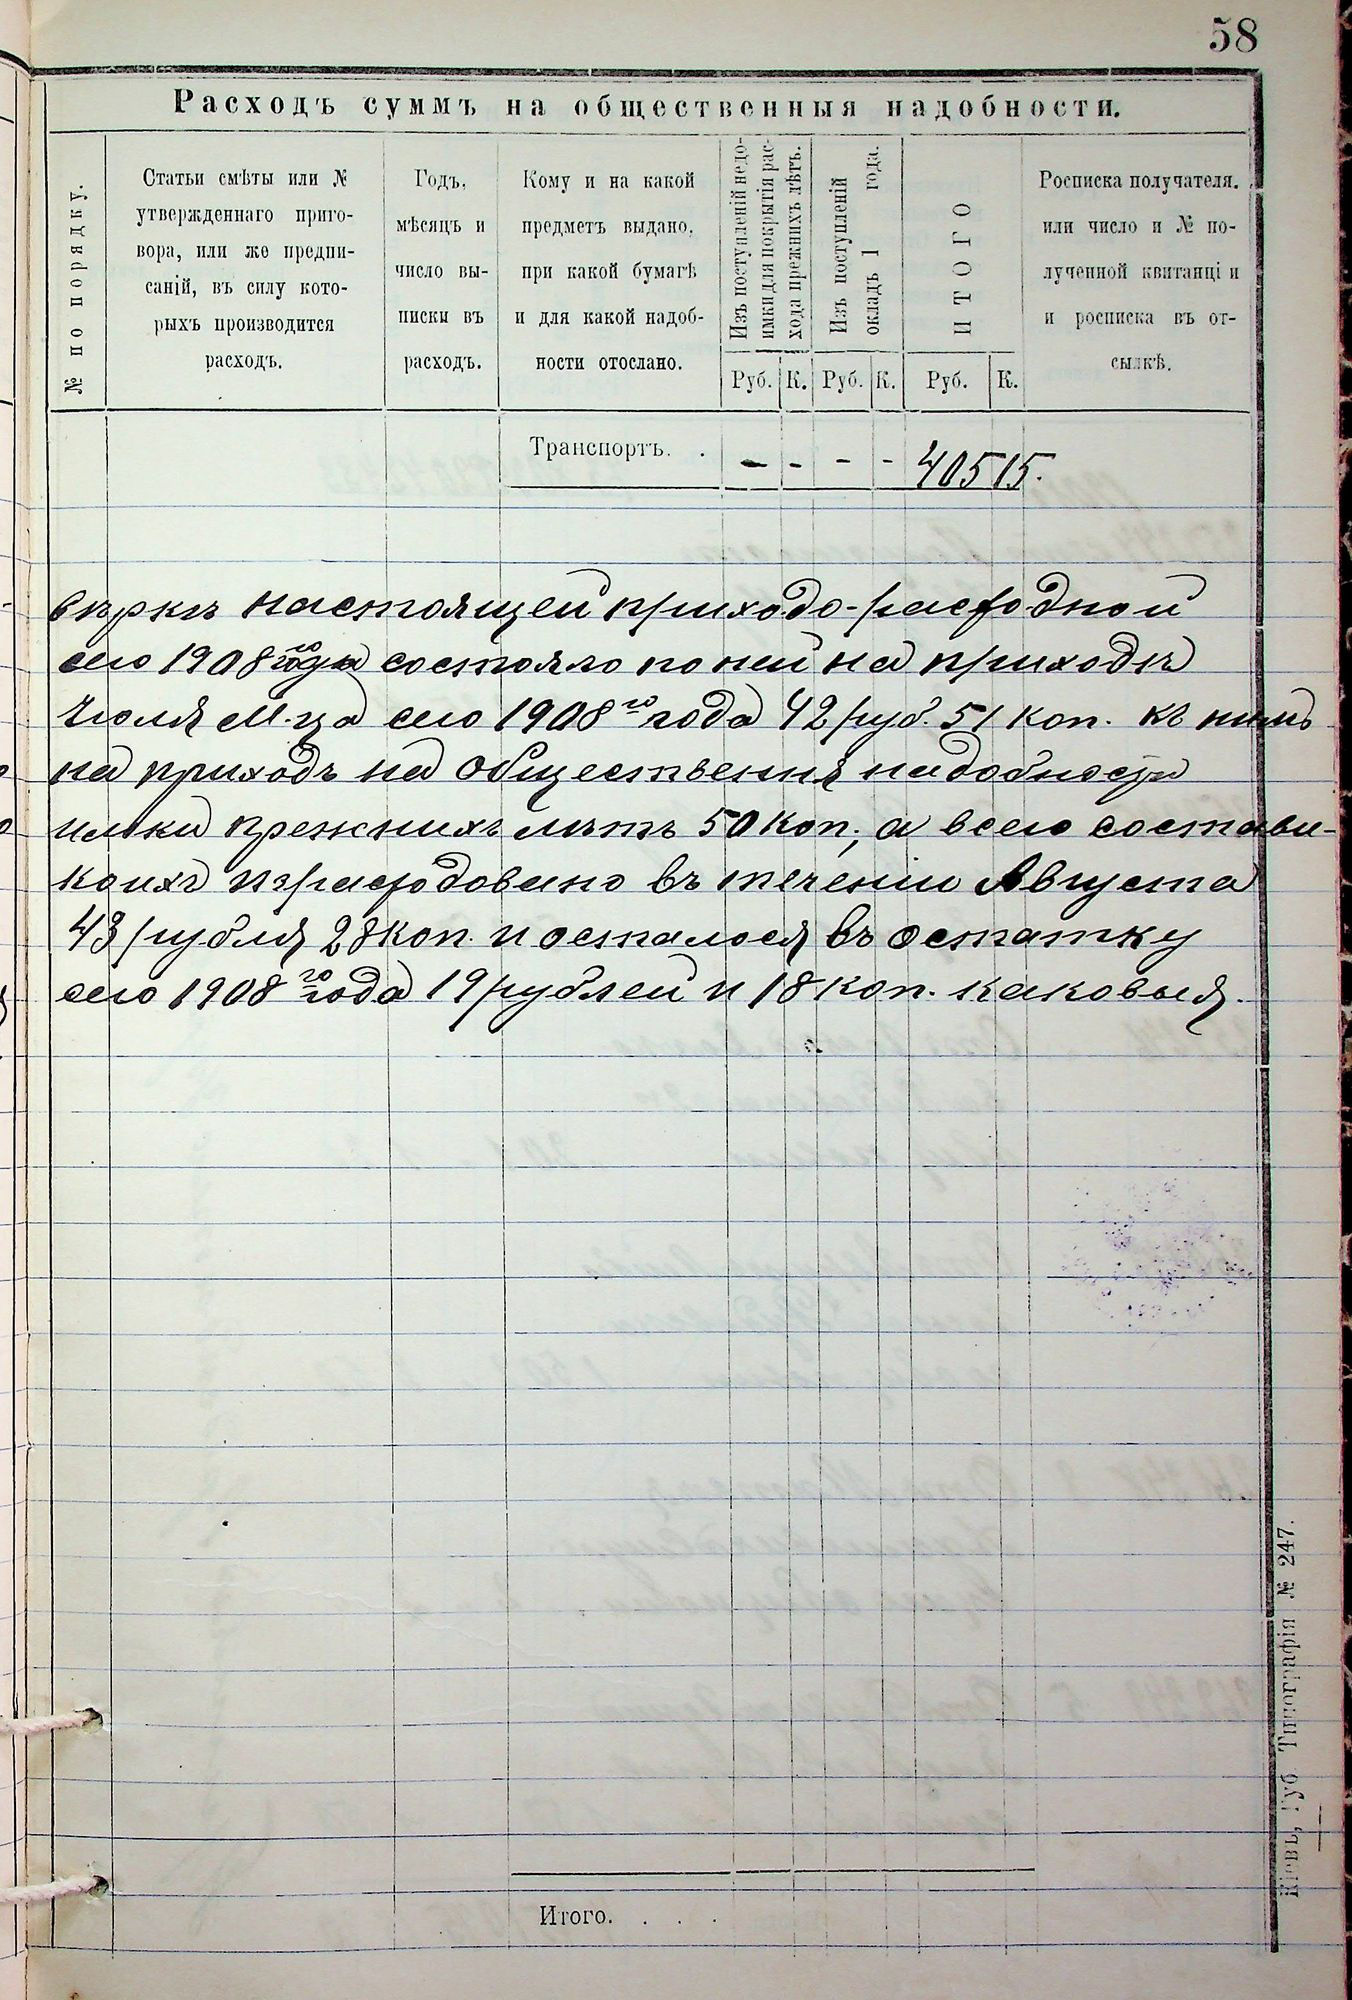 58
Расходъ суммъ на общественныя надобности.
№ по порядку.
Статьи смѣты или №
утвержденнаго приго-
вора, или же предпи-
саній, въ силу кото-
рыхъ производится
расходъ.
Годъ,
мѣсяцъ и
число вы-
писки въ
расходъ.
Кому и на какой
предметъ выдано,
при какой бумагѣ
и для какой надоб-
ности отослано.
Изъ поступленій недо-
имки для покрытія рас-
хода прежнихъ лѣтъ.
Изъ поступленій
окладъ 1 года.
ИТОГО
Росписка получателя.
или число и № по-
лученной квитанці и
и росписка въ от-
сылкѣ.
Руб. К. Руб. К. Руб. К.
Транспортъ. . - - - - 405 15.
вѣркѣ настоящей приходо-расходной
сего 1908 го года состояло по ней на приходѣ
Июля М-ца сего 1908 го года 42 руб. 51 коп. къ нимъ
на приходъ на общественныя надобности
имки прежнихъ лѣтъ 50 коп., а всего состави-
коихъ израсходовано въ теченіи Августа
43 рубля 28 коп. и осталося въ остатку
сего 1908 го года 19 рублей и 18 коп. каковыя.
Итого. . . .
Кіевъ, Губ Типографія № 247.